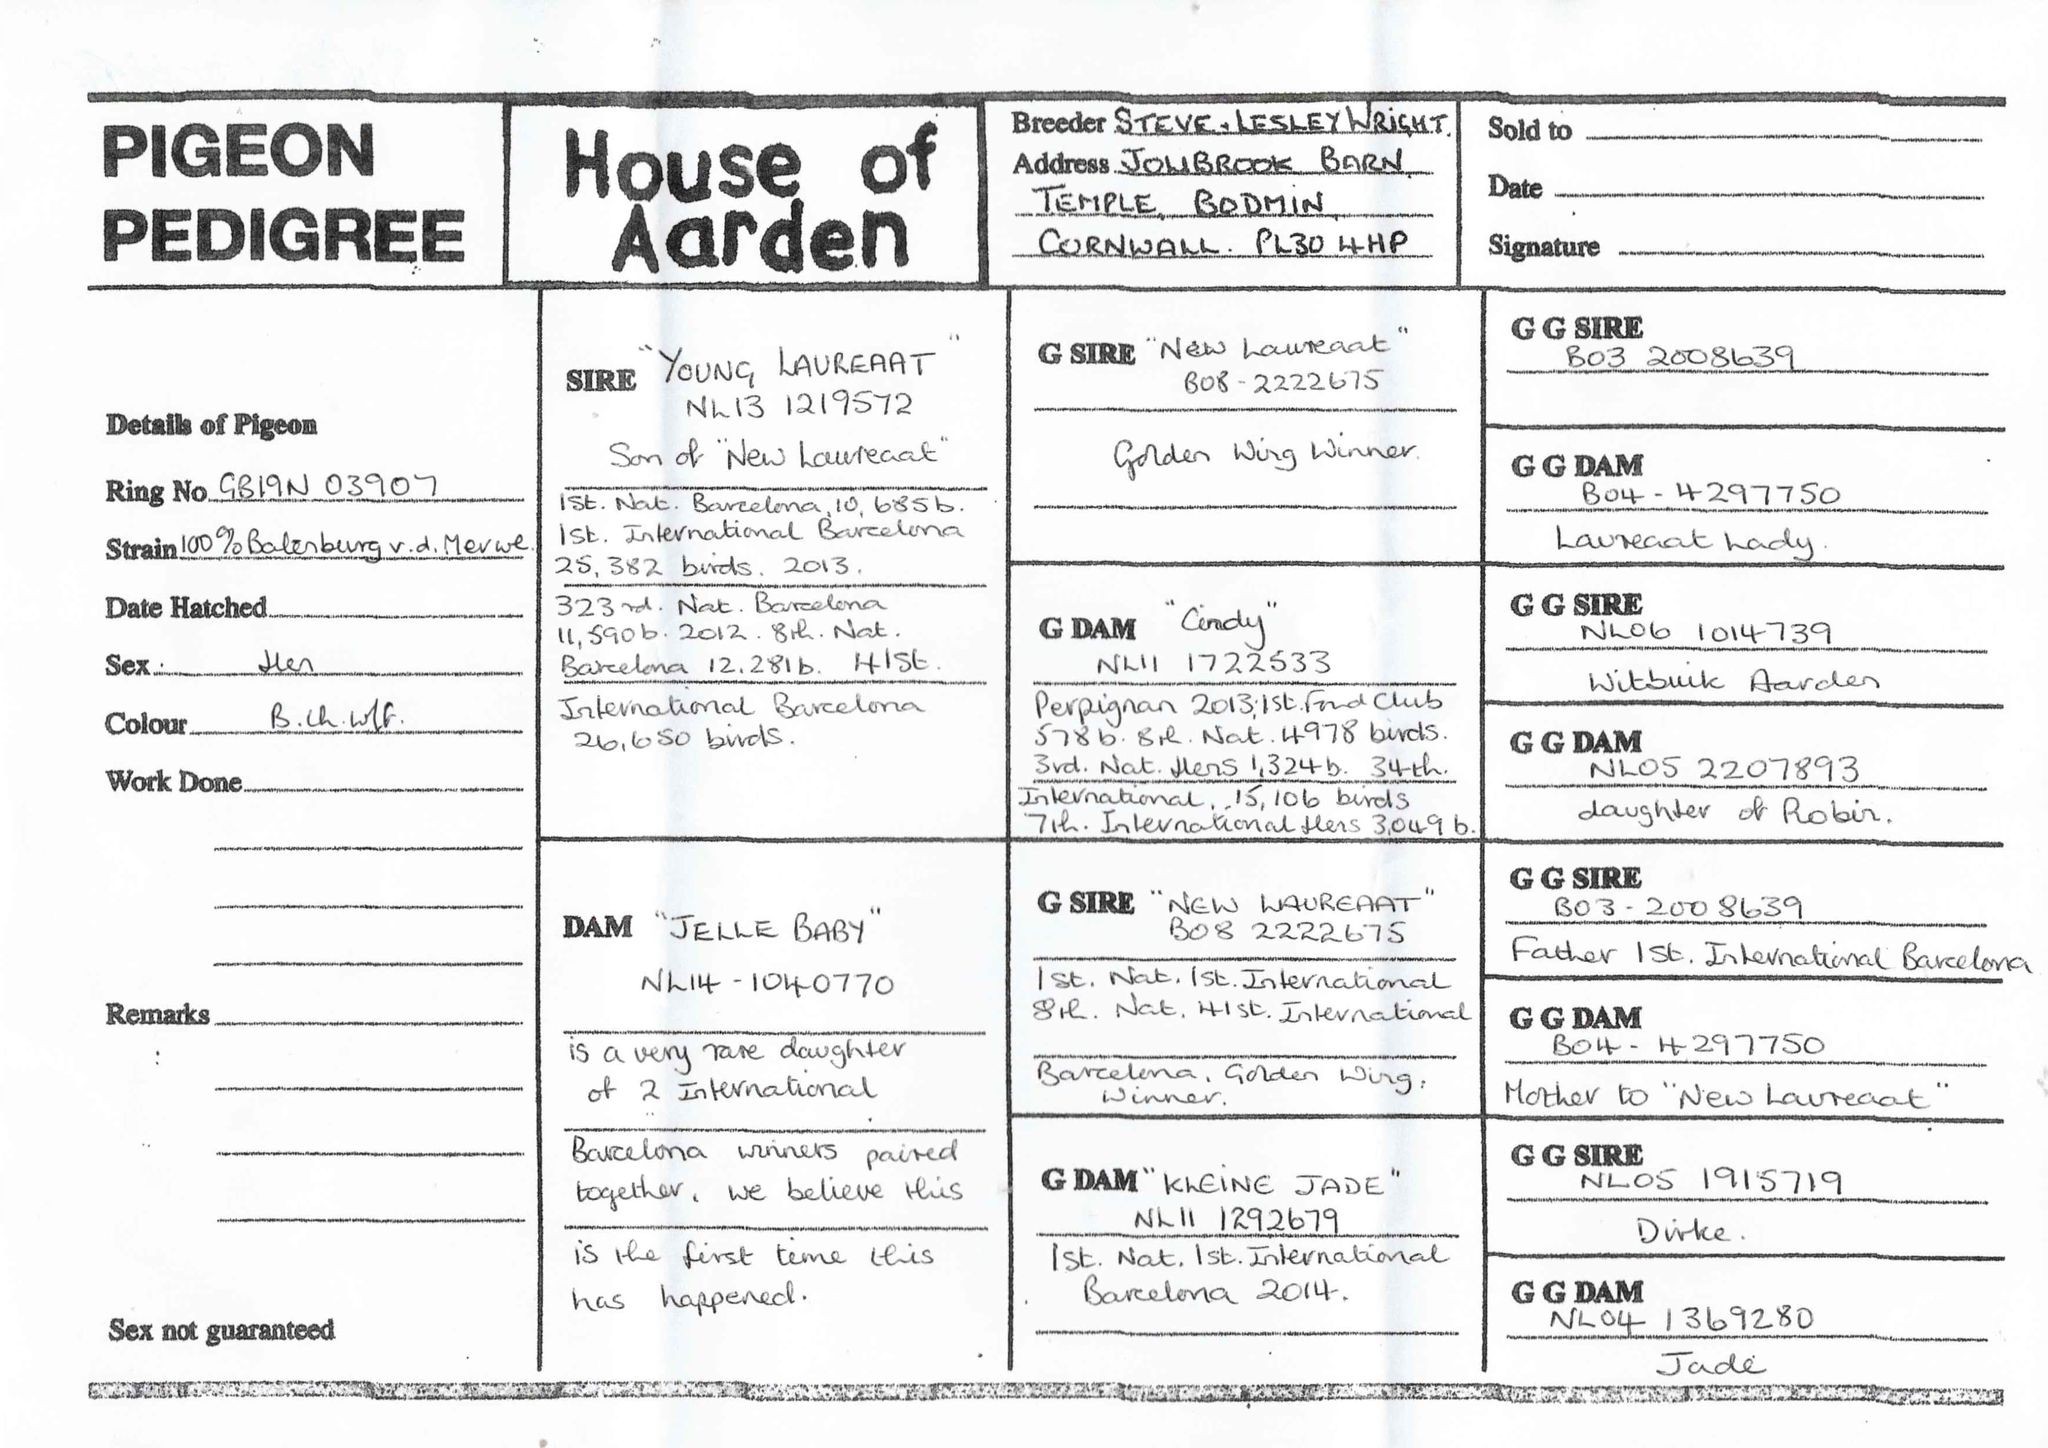 PIGEON
PEDIGREE
House of
Aarden
Breeder STEVE + LESLEY WRIGHT.
Address JOLLBROOK BARN,
TEMPLE, BODMIN,
CORNWALL. PL30 4HP
Sold to
Date
Signature
Details of Pigeon
Ring No GB19N 03907
Strain 100% Batenburg v.d. Merwe
Date Hatched
Sex: Hen
Colour B.Ch.Wf.
Work Done
Remarks
Sex not guaranteed
SIRE "YOUNG LAUREAAT"
NL13 1219572
Son of "New Laureaat"
1st. Nat. Barcelona, 10,685b.
1st. International Barcelona
25,382 birds. 2013.
323rd. Nat. Barcelona
11,590b. 2012. 8th. Nat.
Barcelona 12.281b. 41st.
International Barcelona
26,650 birds.
DAM "JELLE BABY"
NL14-1040770
is a very rare daughter
of 2 International
Barcelona winners paired
together, we believe this
is the first time this
has happened.
G SIRE "New Laureaat"
B08-2222675
Golden Wing Winner.
G DAM "Cindy"
NL11 1722533
Perpignan 2013; 1st. Fond Club
578b. 8th. Nat. 4978 birds.
3rd. Nat. Hens 1,324b. 34th.
International, 15,106 birds
7th. International Hens 3,049b.
G SIRE "NEW LAUREAAT"
B08 2222675
1st. Nat. 1st. International
8th. Nat. 41st. International
Barcelona. Golden Wing.
Winner.
G DAM "KLEINE JADE"
NL11 1292679
1st. Nat. 1st. International
Barcelona 2014.
G G SIRE
B03 2008639
G G DAM
B04-4297750
Laureaat Lady.
G G SIRE
NL06 1014739
Witbuik Aarden
G G DAM
NL05 2207893
daughter of Robin.
G G SIRE
B03-2008639
Father 1st. International Barcelona
G G DAM
B04-4297750
Mother to "New Laureaat"
G G SIRE
NL05 1915719
Dirke.
G G DAM
NL04 1369280
Jade